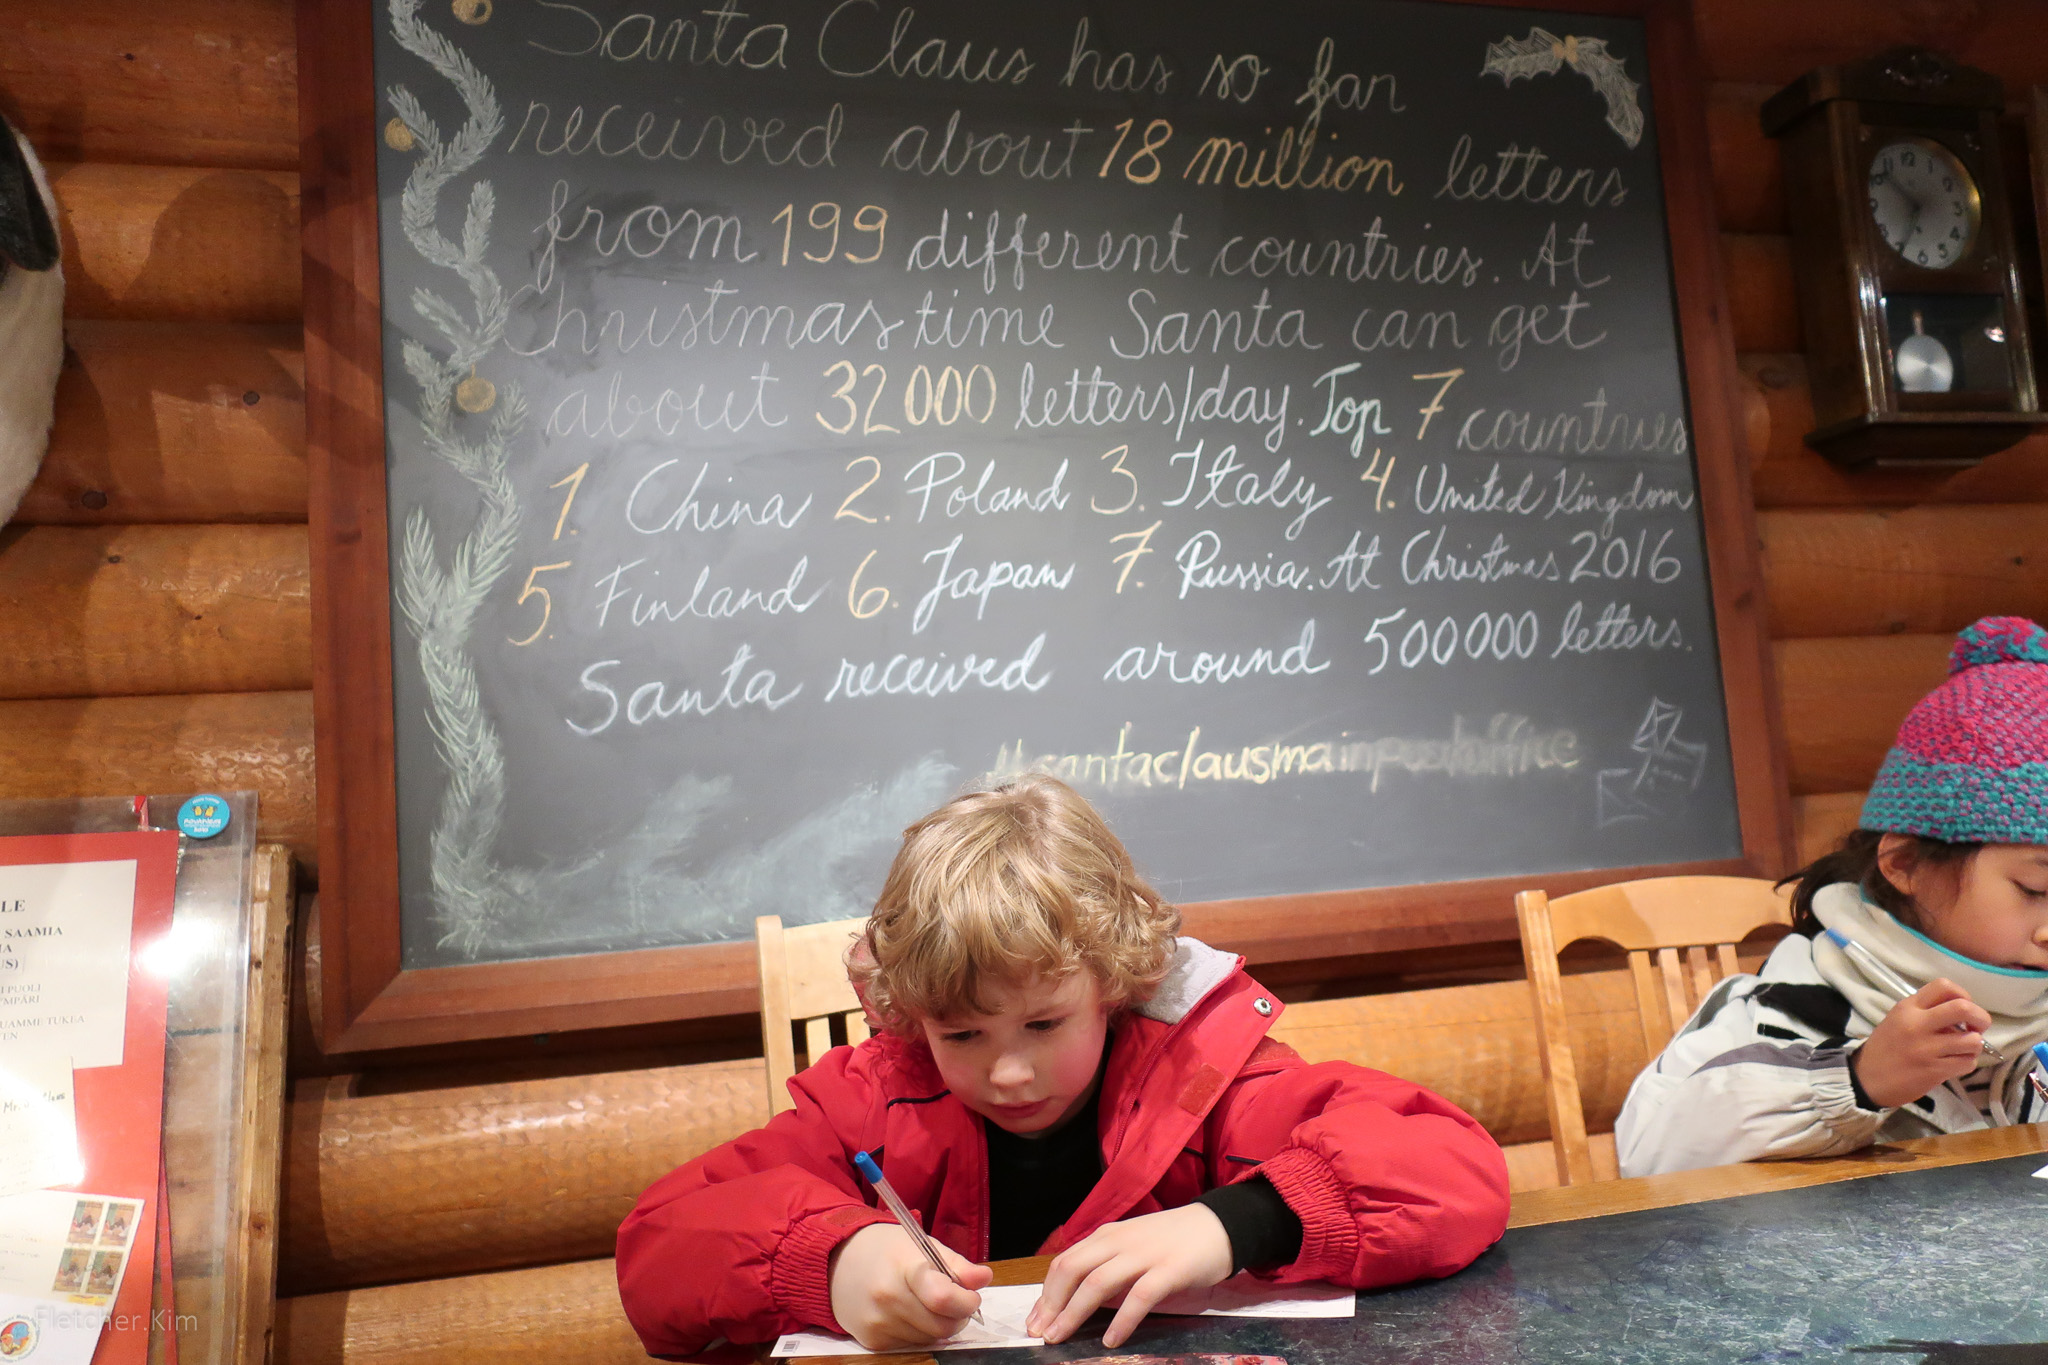 Santa Claus has so far
received about 18 million letters
from 199 different countries. At
Christmas time Santa can get
about 32 000 letters/day. Top 7 countries
1. China 2. Poland 3. Italy 4. United Kingdom
5. Finland 6. Japan 7. Russia. At Christmas 2016
Santa received around 500 000 letters.
#santaclausmainpostoffice
12 1 2 3 4 5 6 7 8 9 10 11
LE
SAAMIA
IA
US)
I PUOLI
YMPÄRI
UAMME TUKEA
TEN
Fletcher.Kim